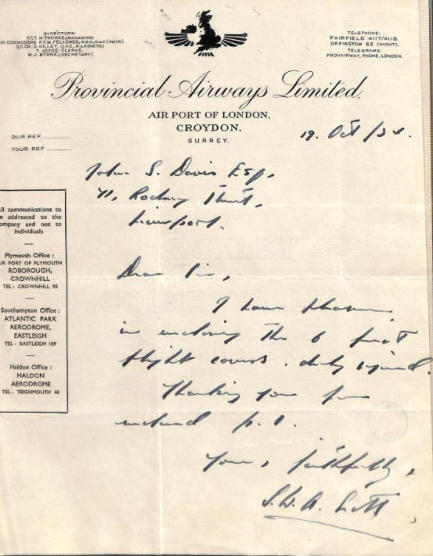 DIRECTORS:
W.J. BYRNE, (SECRETARY)
TELEPHONE:
FAIRFIELD 4117/4118.
ORPINGTON 62 (NIGHT).
TELEGRAMS:
PROVAIRWAY, PHONE, LONDON.
Provincial Airways Limited,
AIR PORT OF LONDON,
CROYDON,
SURREY.
OUR REF
YOUR REF
19. Oct/34.
John S. Davis Esq,
41, Rodney Street,
Liverpool.
All communications to
be addressed to the
Company and not to
individuals
Plymouth Office :
AIR PORT OF PLYMOUTH
ROBOROUGH,
CROWNHILL
TEL : CROWNHILL 93
Southampton Office :
ATLANTIC PARK
AERODROME,
EASTLEIGH
TEL : EASTLEIGH 189
Haldon Office :
HALDON
AERODROME
TEL : TEIGNMOUTH
Dear Sir,
I have pleasure
in enclosing the 6 first
flight covers. duly signed.
Thanking you for
p.o.
Yours faithfully,